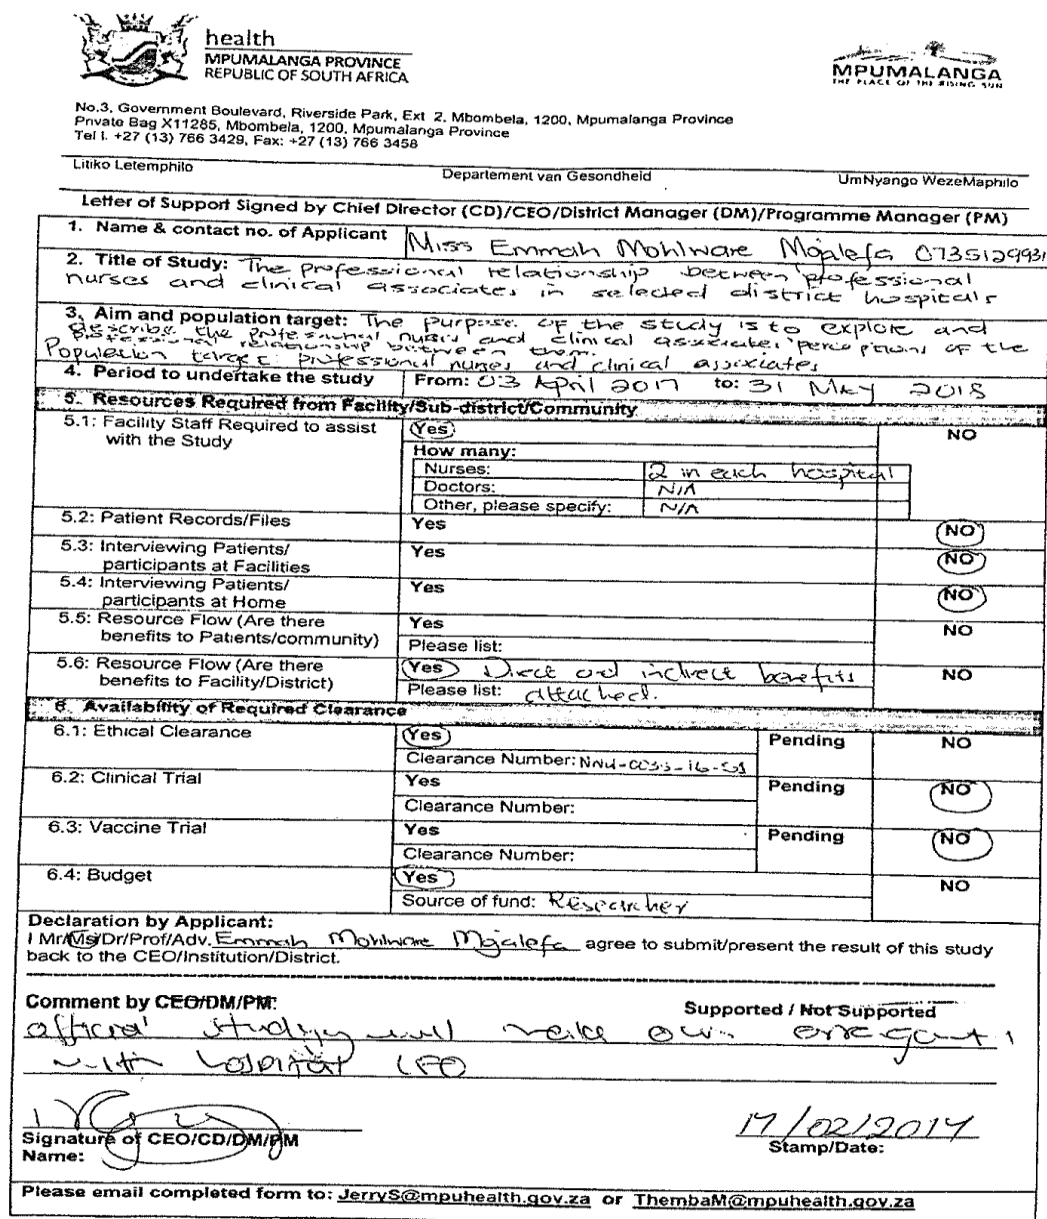 health
MPUMALANGA PROVINCE
REPUBLIC OF SOUTH AFRICA
MPUMALANGA
THE PLACE OF THE RISING SUN
No.3, Government Boulevard, Riverside Park, Ext 2, Mbombela, 1200, Mpumalanga Province
Private Bag X11285, Mbombela, 1200, Mpumalanga Province
Tel I. +27 (13) 766 3429, Fax: +27 (13) 766 3458
Litiko Letemphilo Departement van Gesondheid UmNyango WezeMaphilo
Letter of Support Signed by Chief Director (CD)/CEO/District Manager (DM)/Programme Manager (PM)
1. Name & contact no. of Applicant Miss Emmah Mohlware Mojalefa 0735129931
2. Title of Study: The professional relationship between professional
nurses and clinical associates in selected district hospitals
3. Aim and population target: The purpose of the study is to explore and
describe the professional nurses and clinical associates' perceptions of the
professional relationship between them.
Population target: professional nurses and clinical associates
4. Period to undertake the study From: 03 April 2017 to: 31 May 2018
5. Resources Required from Facility/Sub-district/Community
5.1: Facility Staff Required to assist Yes NO
with the Study
How many:
Nurses: 2 in each hospital
Doctors: N/A
Other, please specify: N/A
5.2: Patient Records/Files Yes NO
5.3: Interviewing Patients/ Yes NO
participants at Facilities
5.4: Interviewing Patients/ Yes NO
participants at Home
5.5: Resource Flow (Are there Yes NO
benefits to Patients/community) Please list:
5.6: Resource Flow (Are there Yes Direct and indirect benefits NO
benefits to Facility/District) Please list: attached.
6. Availability of Required Clearance
6.1: Ethical Clearance Yes Pending NO
Clearance Number:
6.2: Clinical Trial Yes Pending NO
Clearance Number:
6.3: Vaccine Trial Yes Pending NO
Clearance Number:
6.4: Budget Yes NO
Source of fund: Researcher
Declaration by Applicant:
I Mr/Ms/Dr/Prof/Adv. Emmah Mohlware Mojalefa agree to submit/present the result of this study
back to the CEO/Institution/District.
Comment by CEO/DM/PM: Supported / Not Supported
official will make own
with hospital CEO
Signature of CEO/CD/DM/PM 17/02/2017
Name: Stamp/Date:
Please email completed form to: JerryS@mpuhealth.gov.za or ThembaM@mpuhealth.gov.za